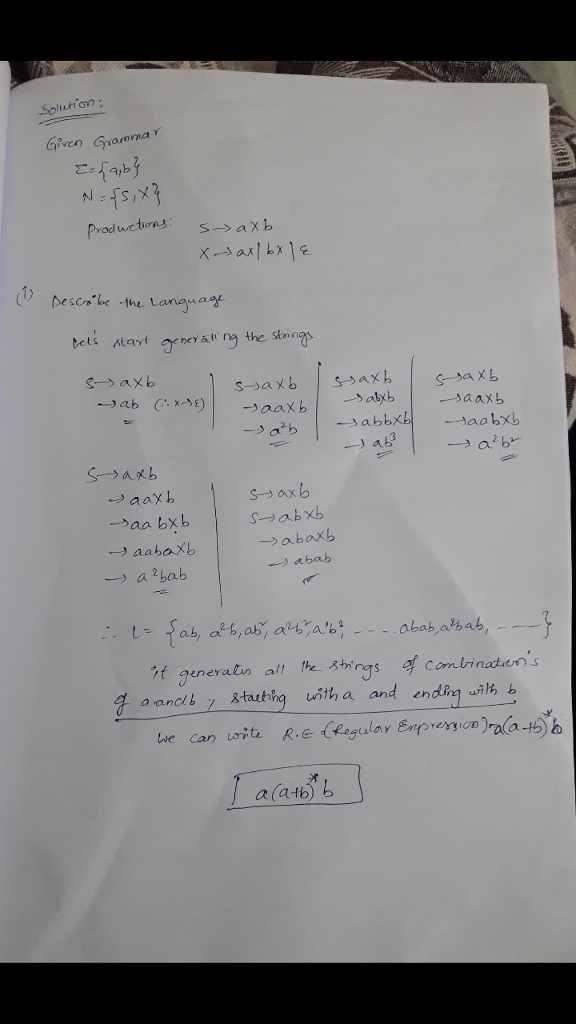 Solution:
Given Grammar
Σ={a,b}
N={S,X}
Productions: S→aXb
X→aX|bX|ε
(i) Describe the Language
Let's start generating the strings
S→aXb
→ab (∵ X→ε)
S→aXb
→aaXb
→a²b
S→aXb
→abXb
→abbXb
→ab³
S→aXb
→aaXb
→aabXb
→a²b²
S→aXb
→aaXb
→aabXb
→aabaXb
→a²bab
S→aXb
S→abXb
→abaXb
→abab
∴ L= {ab, a²b, ab², a²b², a¹b³, ---- abab, a²bab, ----}
it generates all the strings of combination's
of a and b, starting with a and ending with b
We can write R.E (Regular Expression)=a(a+b)*b
a(a+b)*b